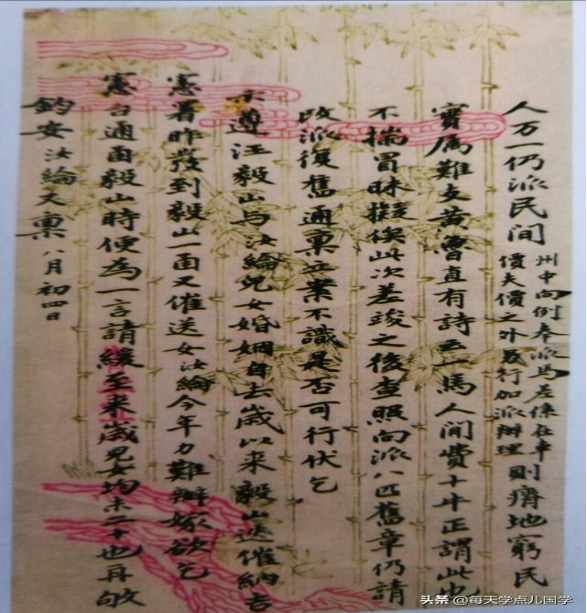 人万一仍派民間
州中向例奉派馬差係在車
價夫價之外另行加派辦理
則瘠地窮民
實屬難支黃曹直有詩云一馬人間費十牛正謂此也
不揣冒昧擬俟此次差竣之後查照向派八匹舊章仍請
改派復舊通稟立案不識是否可行伏乞
示遵汪毅山与汝綸兒女婚姻自去歲以來毅山迭催納吉
憲署昨發到毅山一函又催送女汝綸今年力難辦嫁欲乞
憲台通函毅山時便為一言請緩至來歲兒女均未二十也再敂
鈞安汝綸又稟八月初四日
头条 @每天学点儿国学